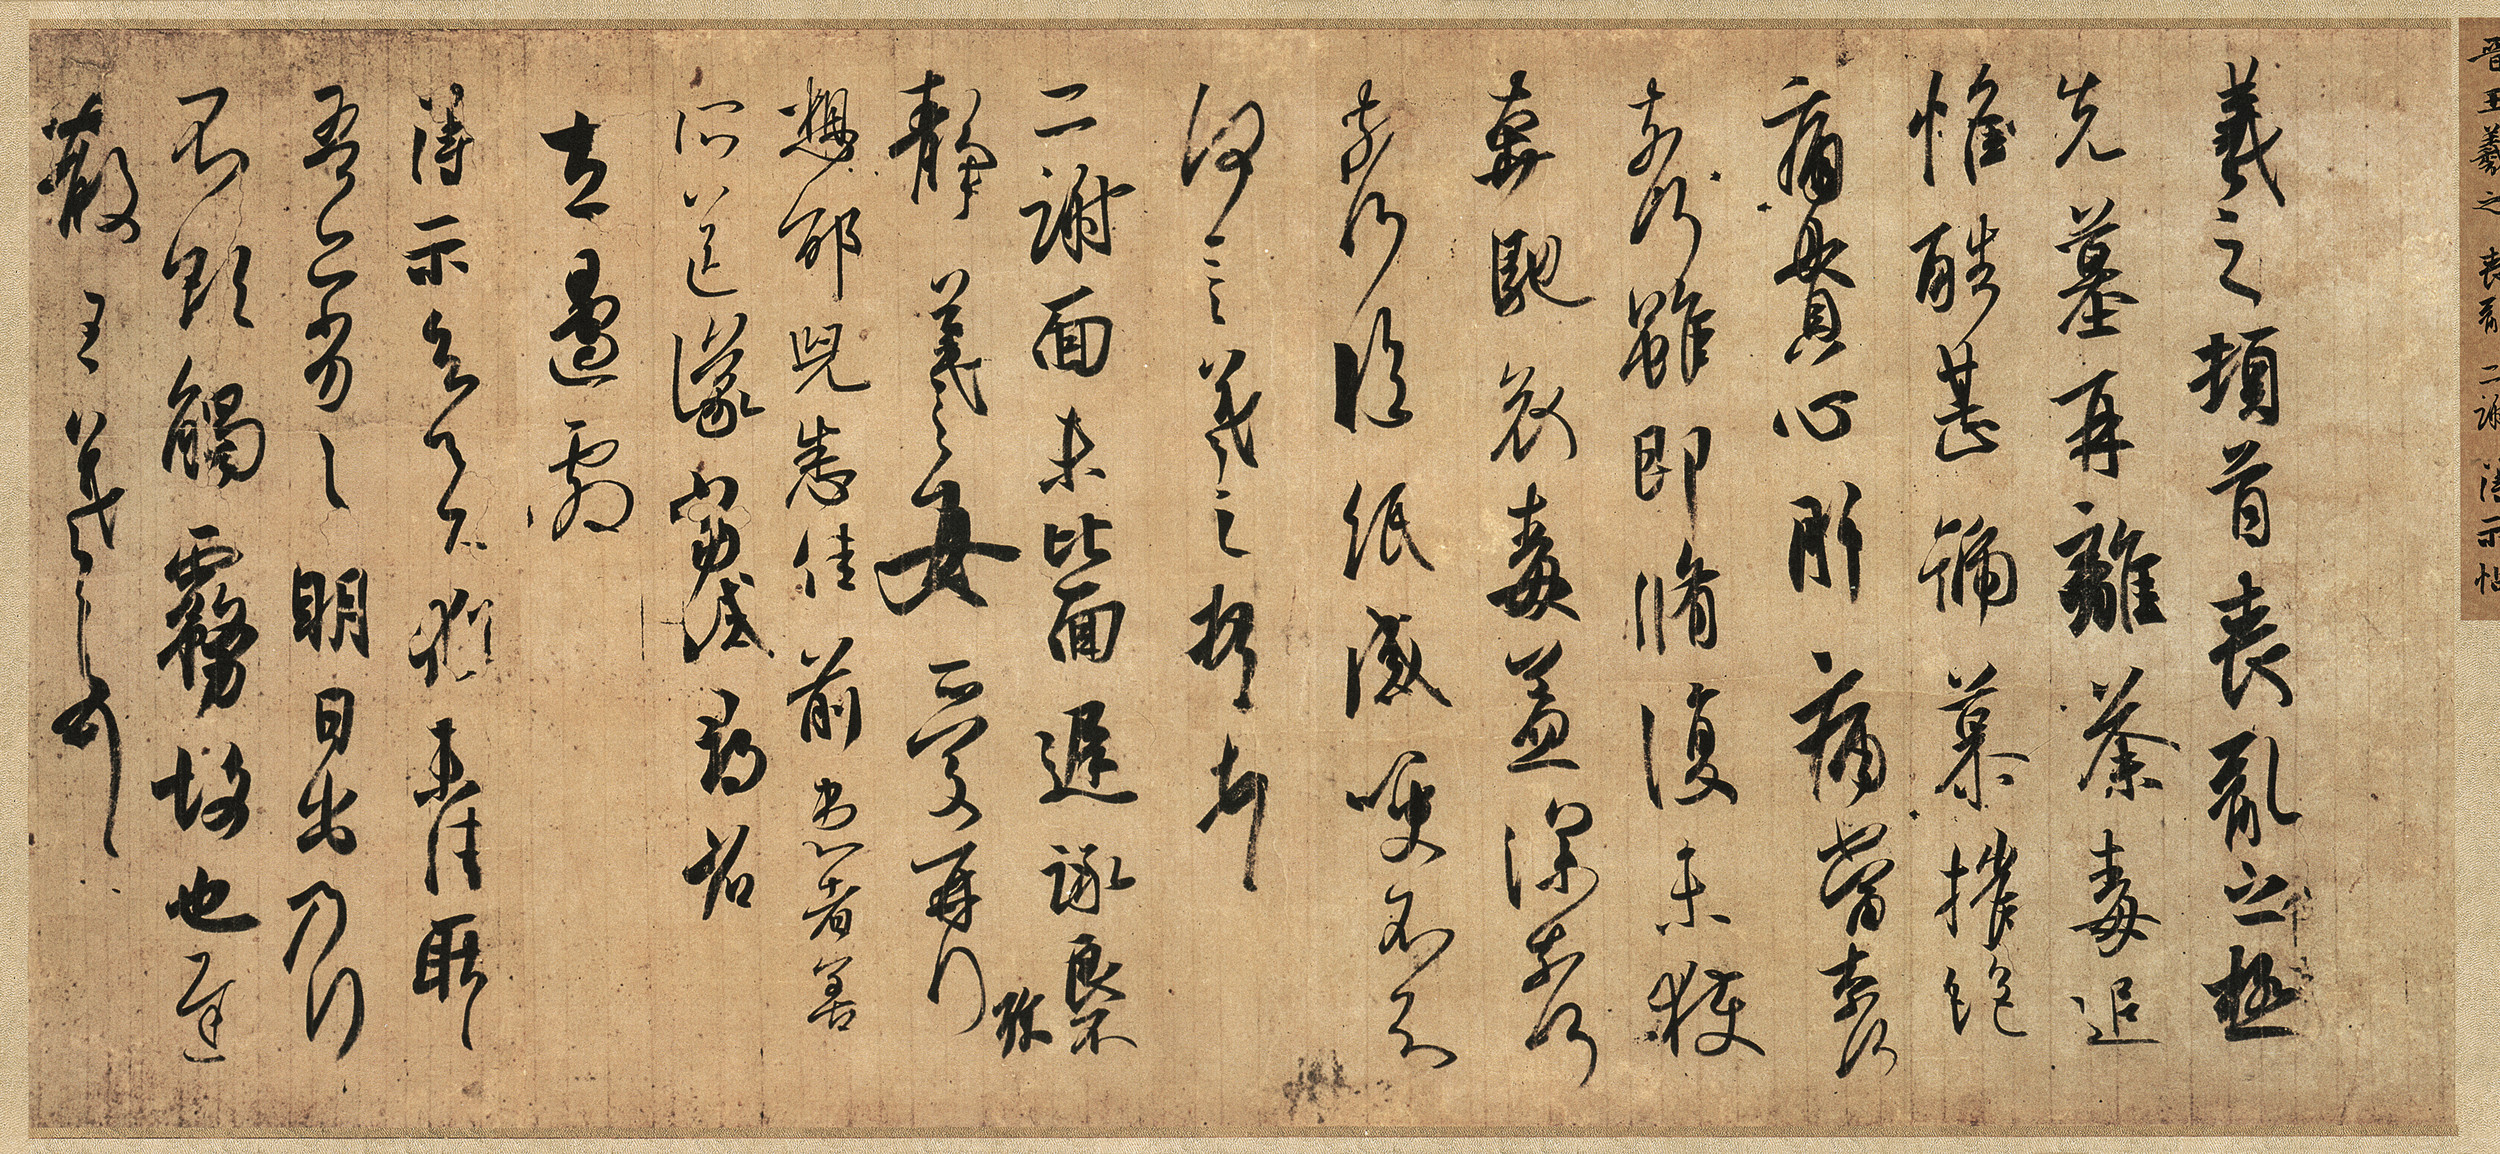 晉王羲之 喪亂 二謝 得示帖
羲之頓首喪亂之極
先墓再離荼毒追
惟酷甚號慕摧絕
痛貫心肝痛當奈何
奈何雖即脩復未獲
奔馳哀毒益深奈何
奈何臨紙感哽不知
何言羲之頓首頓首
二謝面未比面遲詠良不
珍
靜羲之女愛再拜
想邵兒悉佳前患者善
所送議當試尋省
左邊劇
得示知足下猶未佳耿耿
吾亦劣劣明日出乃行
不欲觸霧故也遲
散王羲之頓首